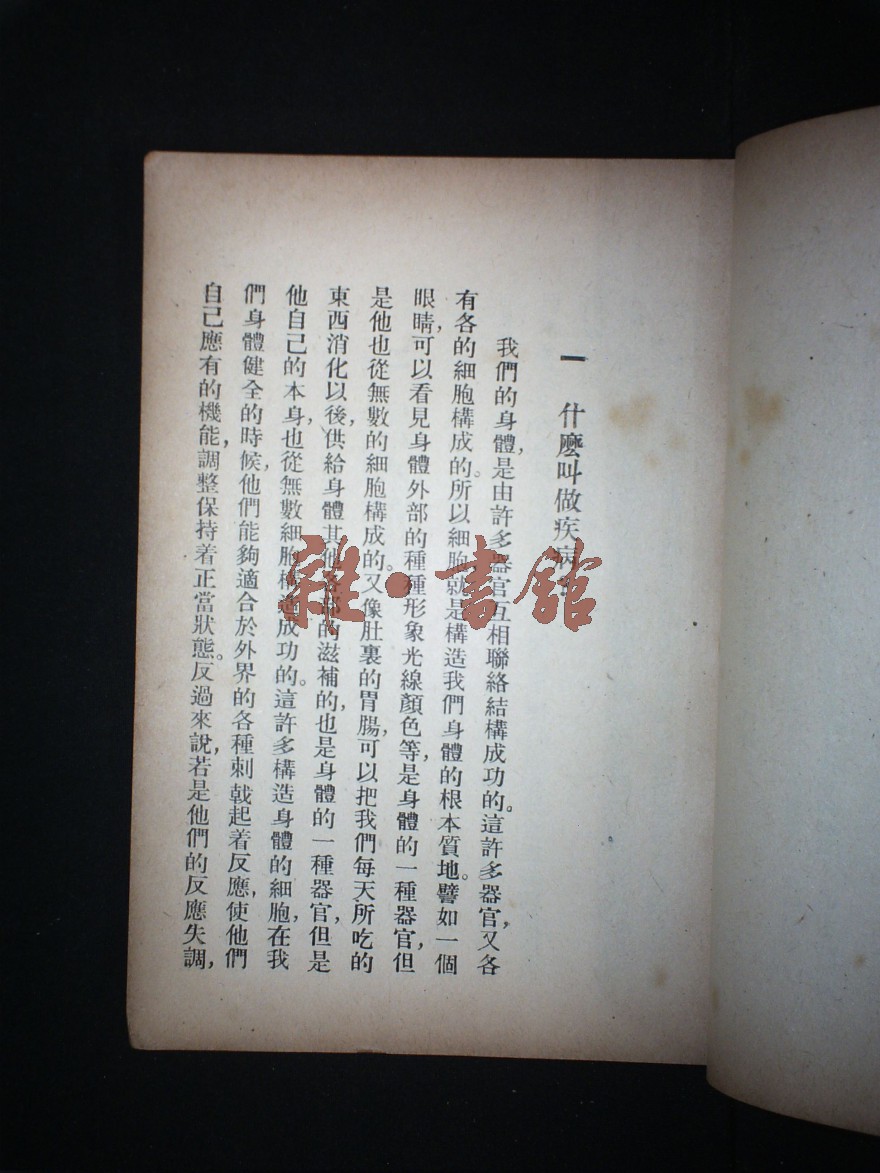 一 什麼叫做疾病?
我們的身體,是由許多器官互相聯絡結構成功的。這許多器官,又各
有各的細胞構成的。所以細胞就是構造我們身體的根本質地。譬如一個
眼睛,可以看見身體外部的種種形象光線顏色等,是身體的一種器官,但
是他也從無數的細胞構成的。又像肚裏的胃腸,可以把我們每天所吃的
東西消化以後,供給身體其他各部的滋補的,也是身體的一種器官,但是
他自己的本身,也從無數細胞構造成功的。這許多構造身體的細胞,在我
們身體健全的時候,他們能夠適合於外界的各種刺戟起着反應,使他們
自己應有的機能,調整保持着正當狀態。反過來說,若是他們的反應失調,
雜·書館